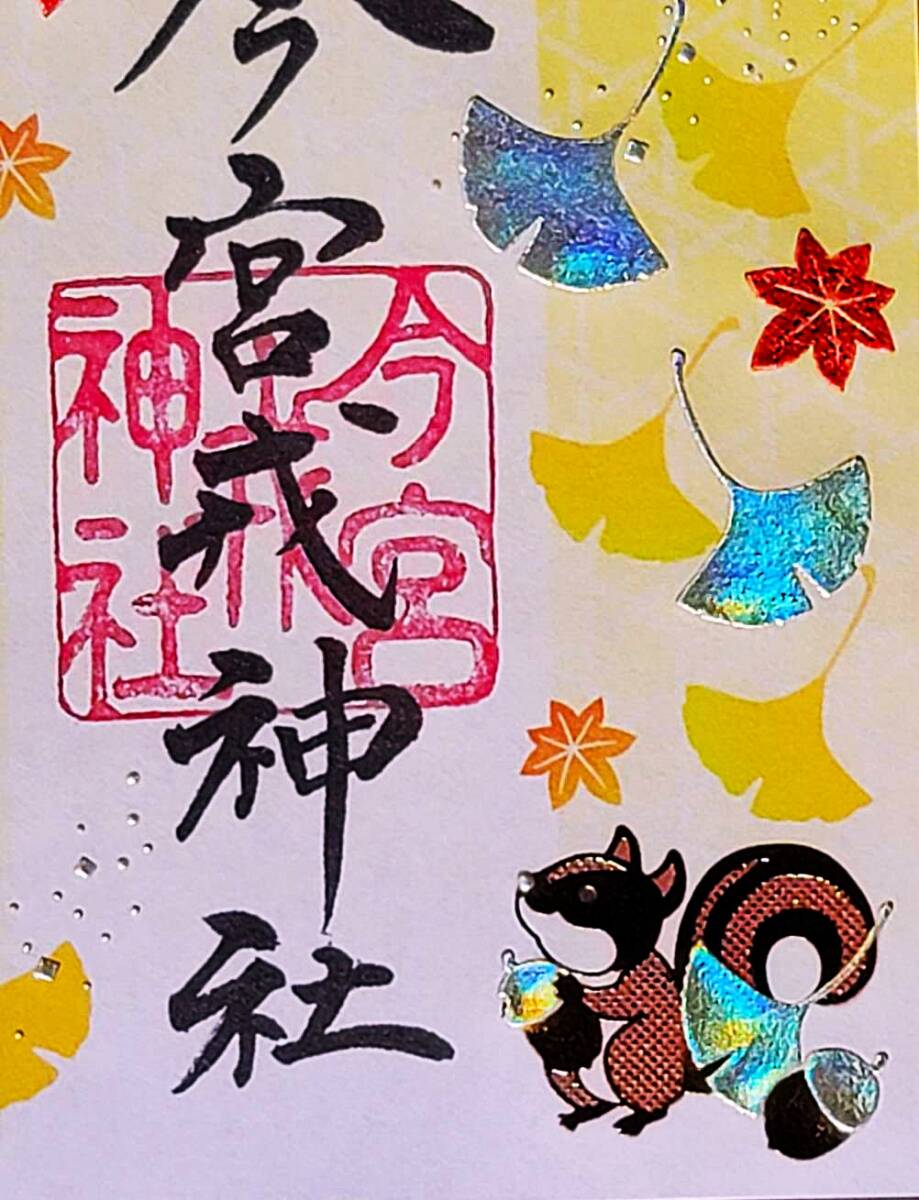 今宮戎神社
今宮
戎
神社